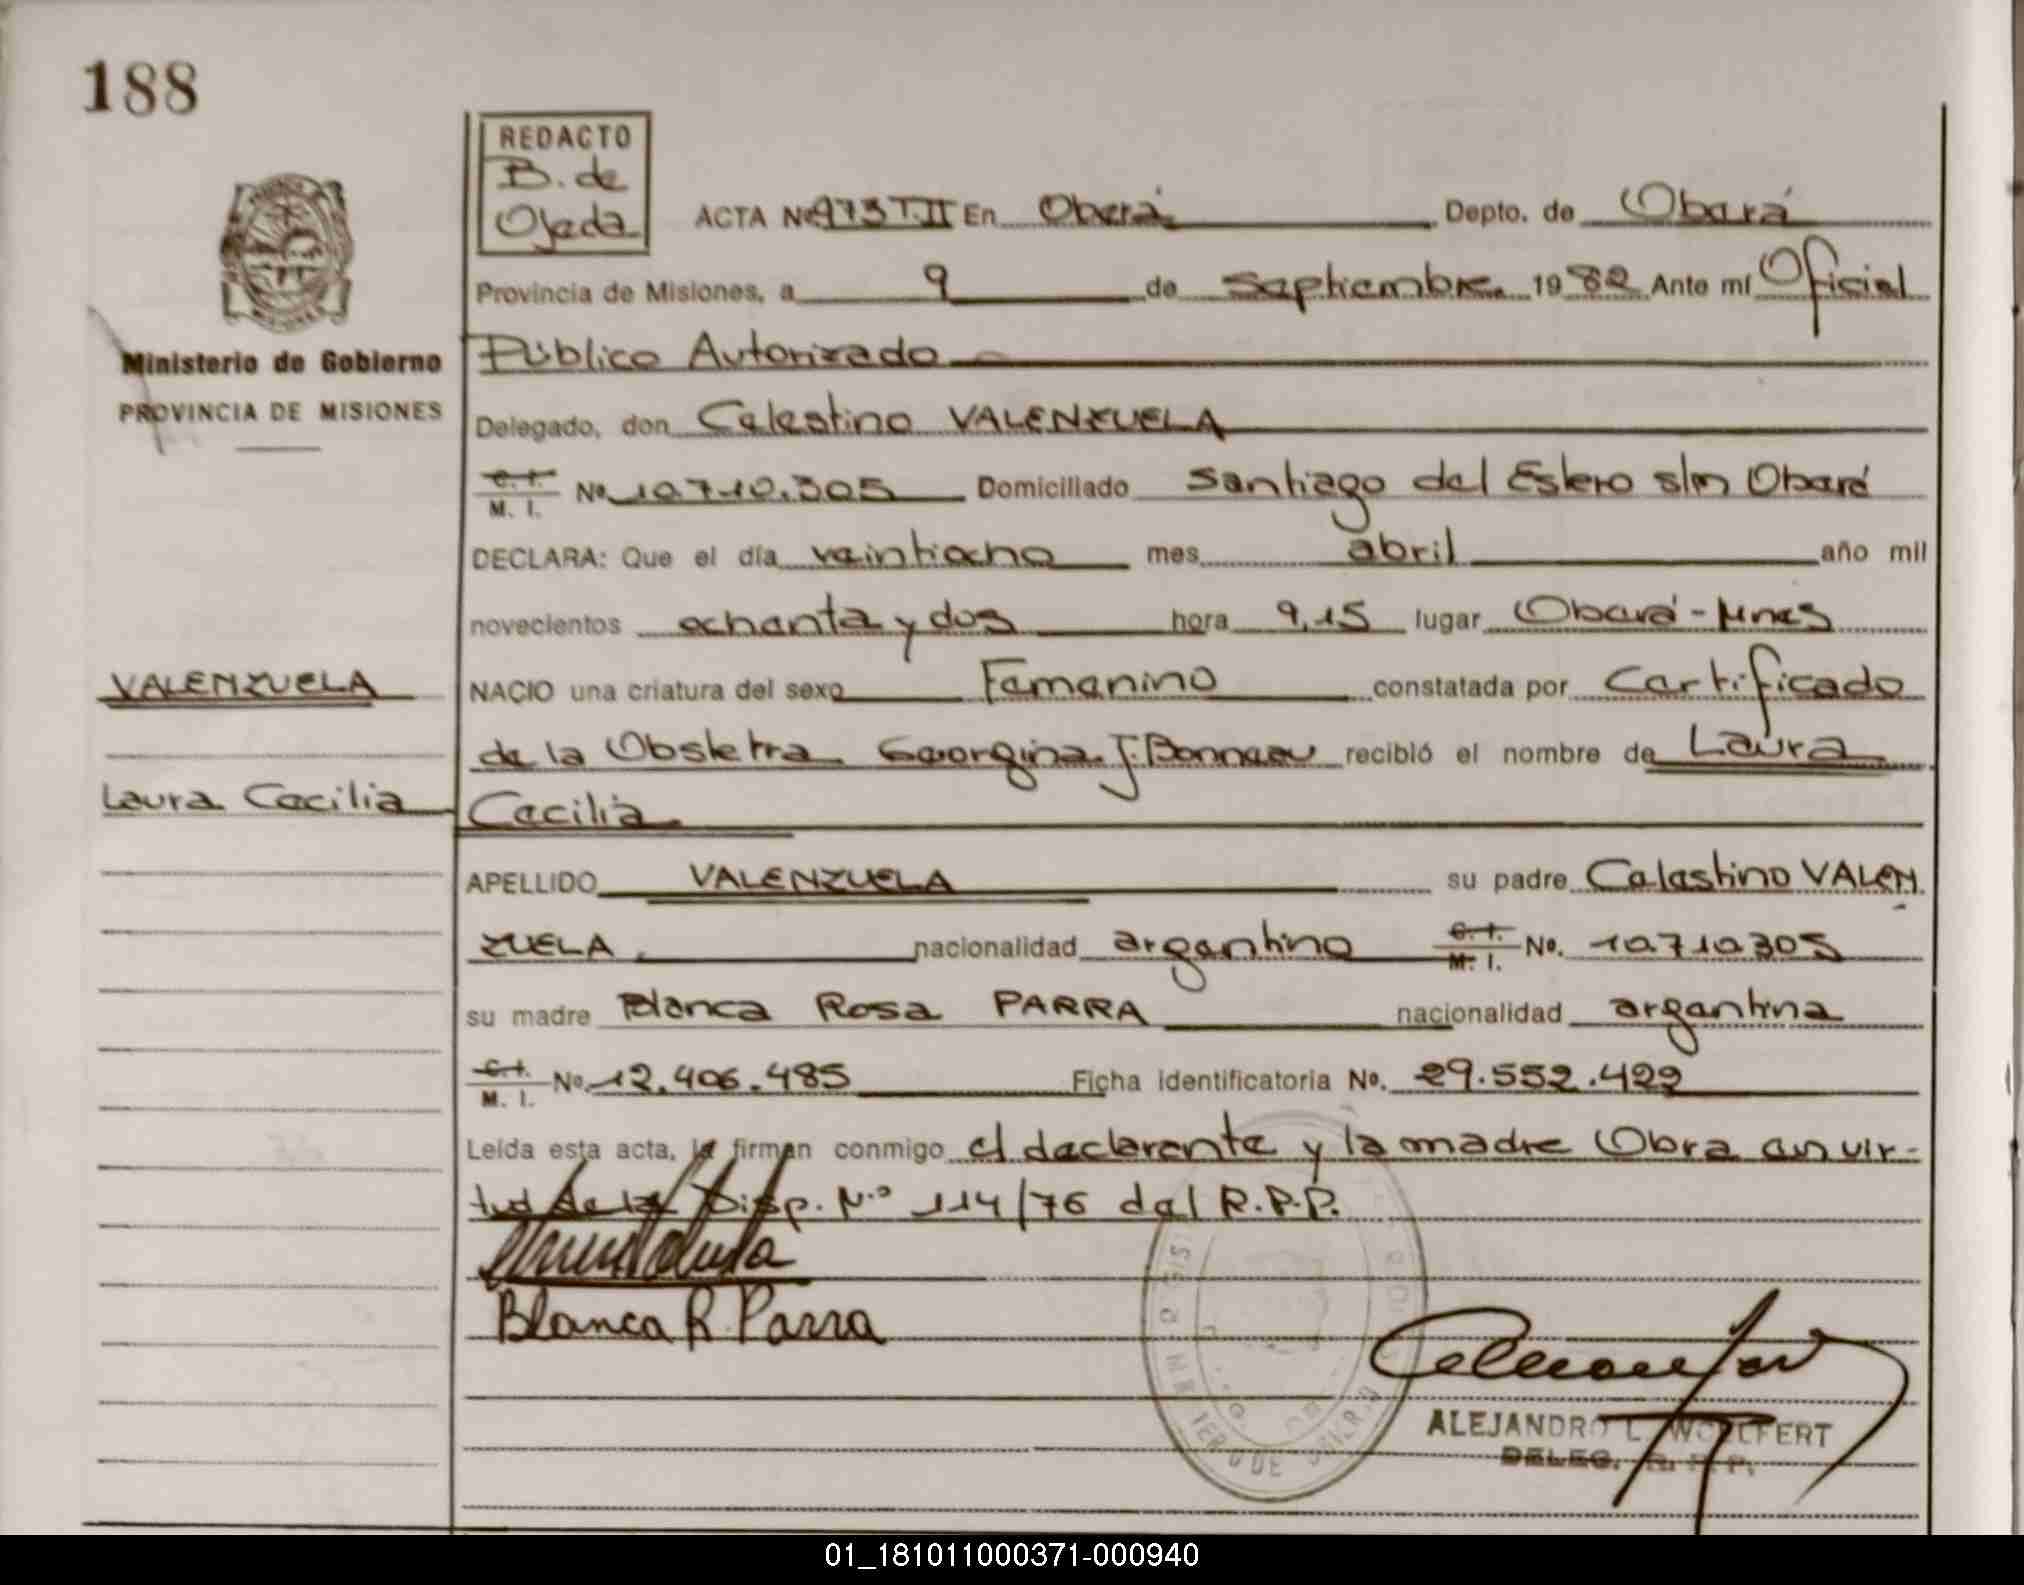 188
REDACTO
B. de
Ojeda
ACTA Nº 973 T.II En Oberá Depto. de Oberá
Provincia de Misiones, a 9 de Septiembre 1982 Ante mí Oficial
Público Autorizado
Delegado, don Celestino VALENZUELA
C. I. M. I. Nº 10.710.305 Domiciliado Santiago del Estero s/n Oberá
DECLARA: Que el día veintiocho mes abril año mil
novecientos ochenta y dos hora 9,15 lugar Oberá - Mnes
NACIO una criatura del sexo Femenino constatada por Certificado
de la Obstetra Georgina J. Bonneau recibió el nombre de Laura
Cecilia
APELLIDO VALENZUELA su padre Celestino VALEN
ZUELA nacionalidad argentino C. I. M. I. No. 10.710.305
su madre Blanca Rosa PARRA nacionalidad argentina
C. I. M. I. Nº 12.406.485 Ficha identificatoria No. 29.552.422
Leída esta acta, la firman conmigo el declarante y la madre Obra en vir-
tud de la Disp. Nº 114/76 del R.P.P.
Blanca R. Parra
ALEJANDRO L. WOLFERT
DELEG. R. P. P.
Ministerio de Gobierno
PROVINCIA DE MISIONES
VALENZUELA
Laura Cecilia
01_181011000371-000940